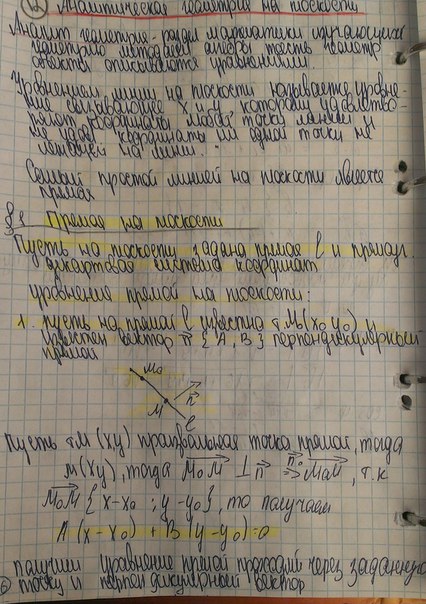 Аналитическая геометрия на плоскости
Аналит геометрия - раздел математики изучающих
геометрию методами алгебры т.есть геометр
объекты описываются уравнениями.
Уравнением линии на плоскости называется уравне-
ние связывающее x и y которым удовлетво-
ряют координаты любой точки линии и
не удов координаты ни одной точки не
лежащей на линии.
Самой простой линией на плоскости является
прямая
§1 Прямая на плоскости
Пусть на плоскости задана прямая l и прямоуг.
декартовая система координат
уравнение прямой на плоскости:
1. пусть на прямой l известна т.M(x₀ y₀) и
известен вектор n⃗ {A, B} перпендикулярный
прямой
M₀
M
n⃗
l
Пусть т.M (xy) произвольная точка прямой, тогда
M(xy), тогда M₀M ⊥ n⃗ => n⃗ · M₀M, т.к
M₀M {x-x₀ ; y-y₀}, то получаем
A (x-x₀) + B (y-y₀)=0
Получили уравнение прямой проходящ через заданную
точку и перпендикулярный вектор